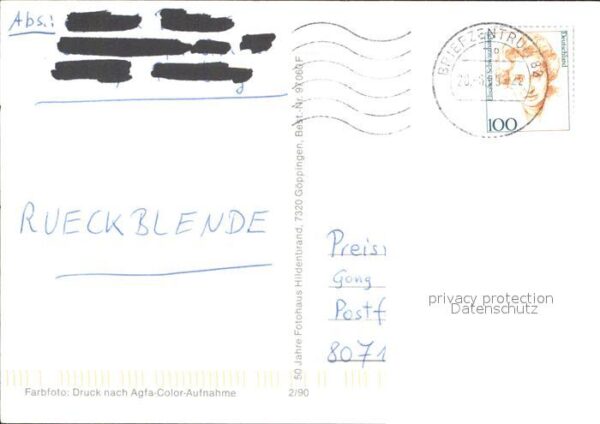 Abs.:
RUECKBLENDE
Farbfoto: Druck nach Agfa-Color-Aufnahme 2/90
50 Jahre Fotohaus Hildenbrand, 7320 Göppingen, Best.-Nr. 97067F
BRIEFZENTRUM 84
Deutschland
100
Preis
Gong
Postf
8071
privacy protection
Datenschutz